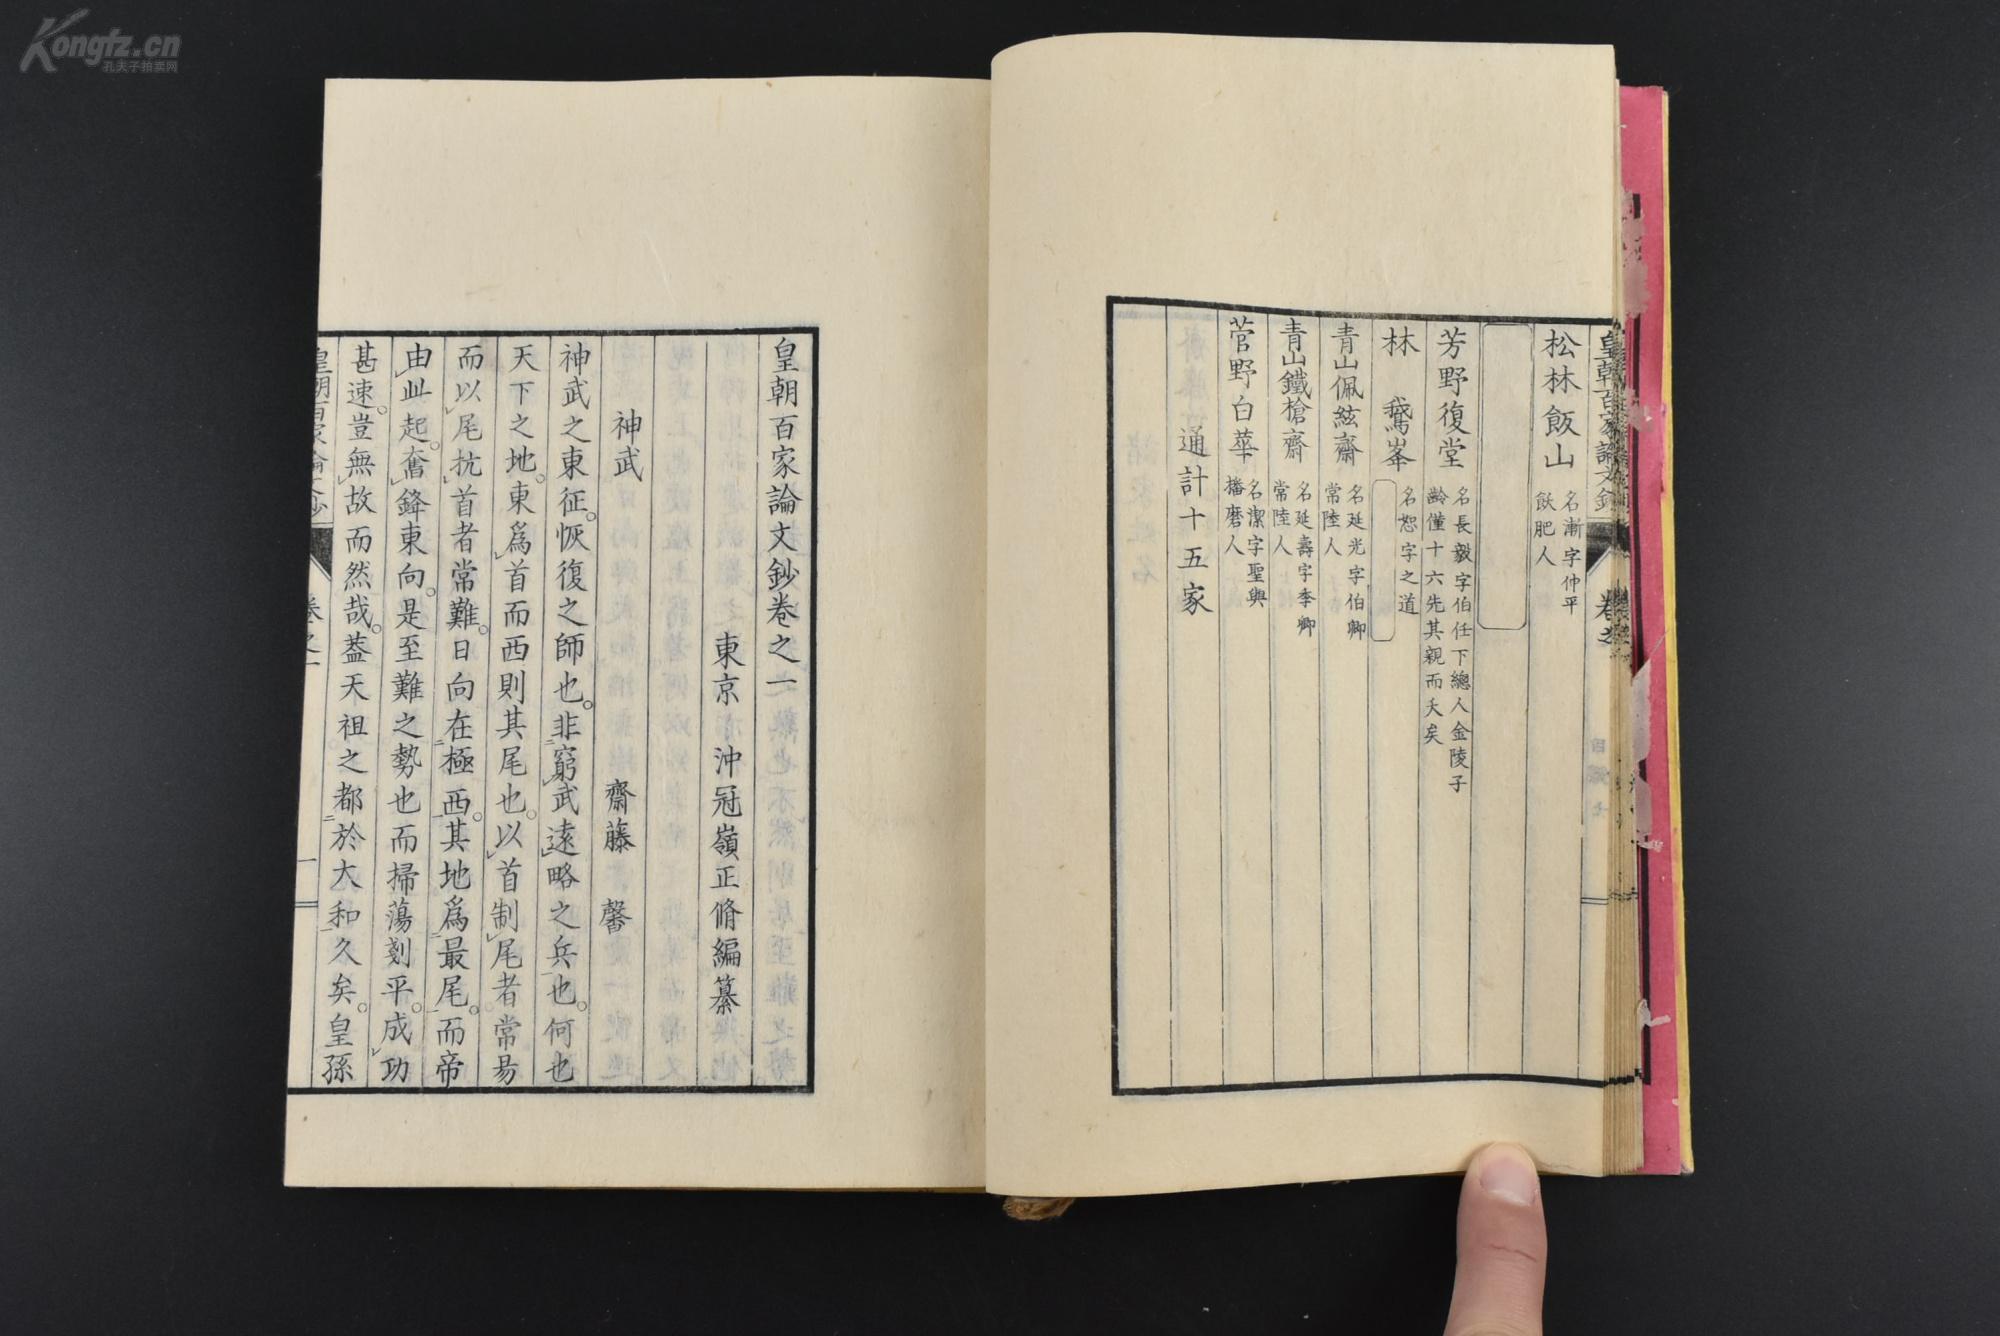 Kongfz.cn
孔夫子拍卖网
松林飯山 名漸字仲平
飫肥人
芳野復堂 名長毅字伯任下總人金陵子
齡僅十六先其親而夭矣
林鵞峯 名恕字之道
青山佩絃齋 名延光字伯卿
常陸人
青山鐵槍齋 名延壽字季卿
常陸人
菅野白華 名潔字聖與
播磨人
通計十五家
皇朝百家論文鈔卷之一
東京 沖冠嶺正脩編纂
神武 齋藤馨
神武之東征。恢復之師也。非窮武遠略之兵也。何也
天下之地。東爲首而西則其尾也。以首制尾者常易
而以尾抗首者常難。日向在極西。其地爲最尾。而帝
由此起。奮鋒東向。是至難之勢也而掃蕩剗平。成功
甚速。豈無故而然哉。蓋天祖之都於大和久矣。皇孫
皇朝百家論文鈔
卷之一
一